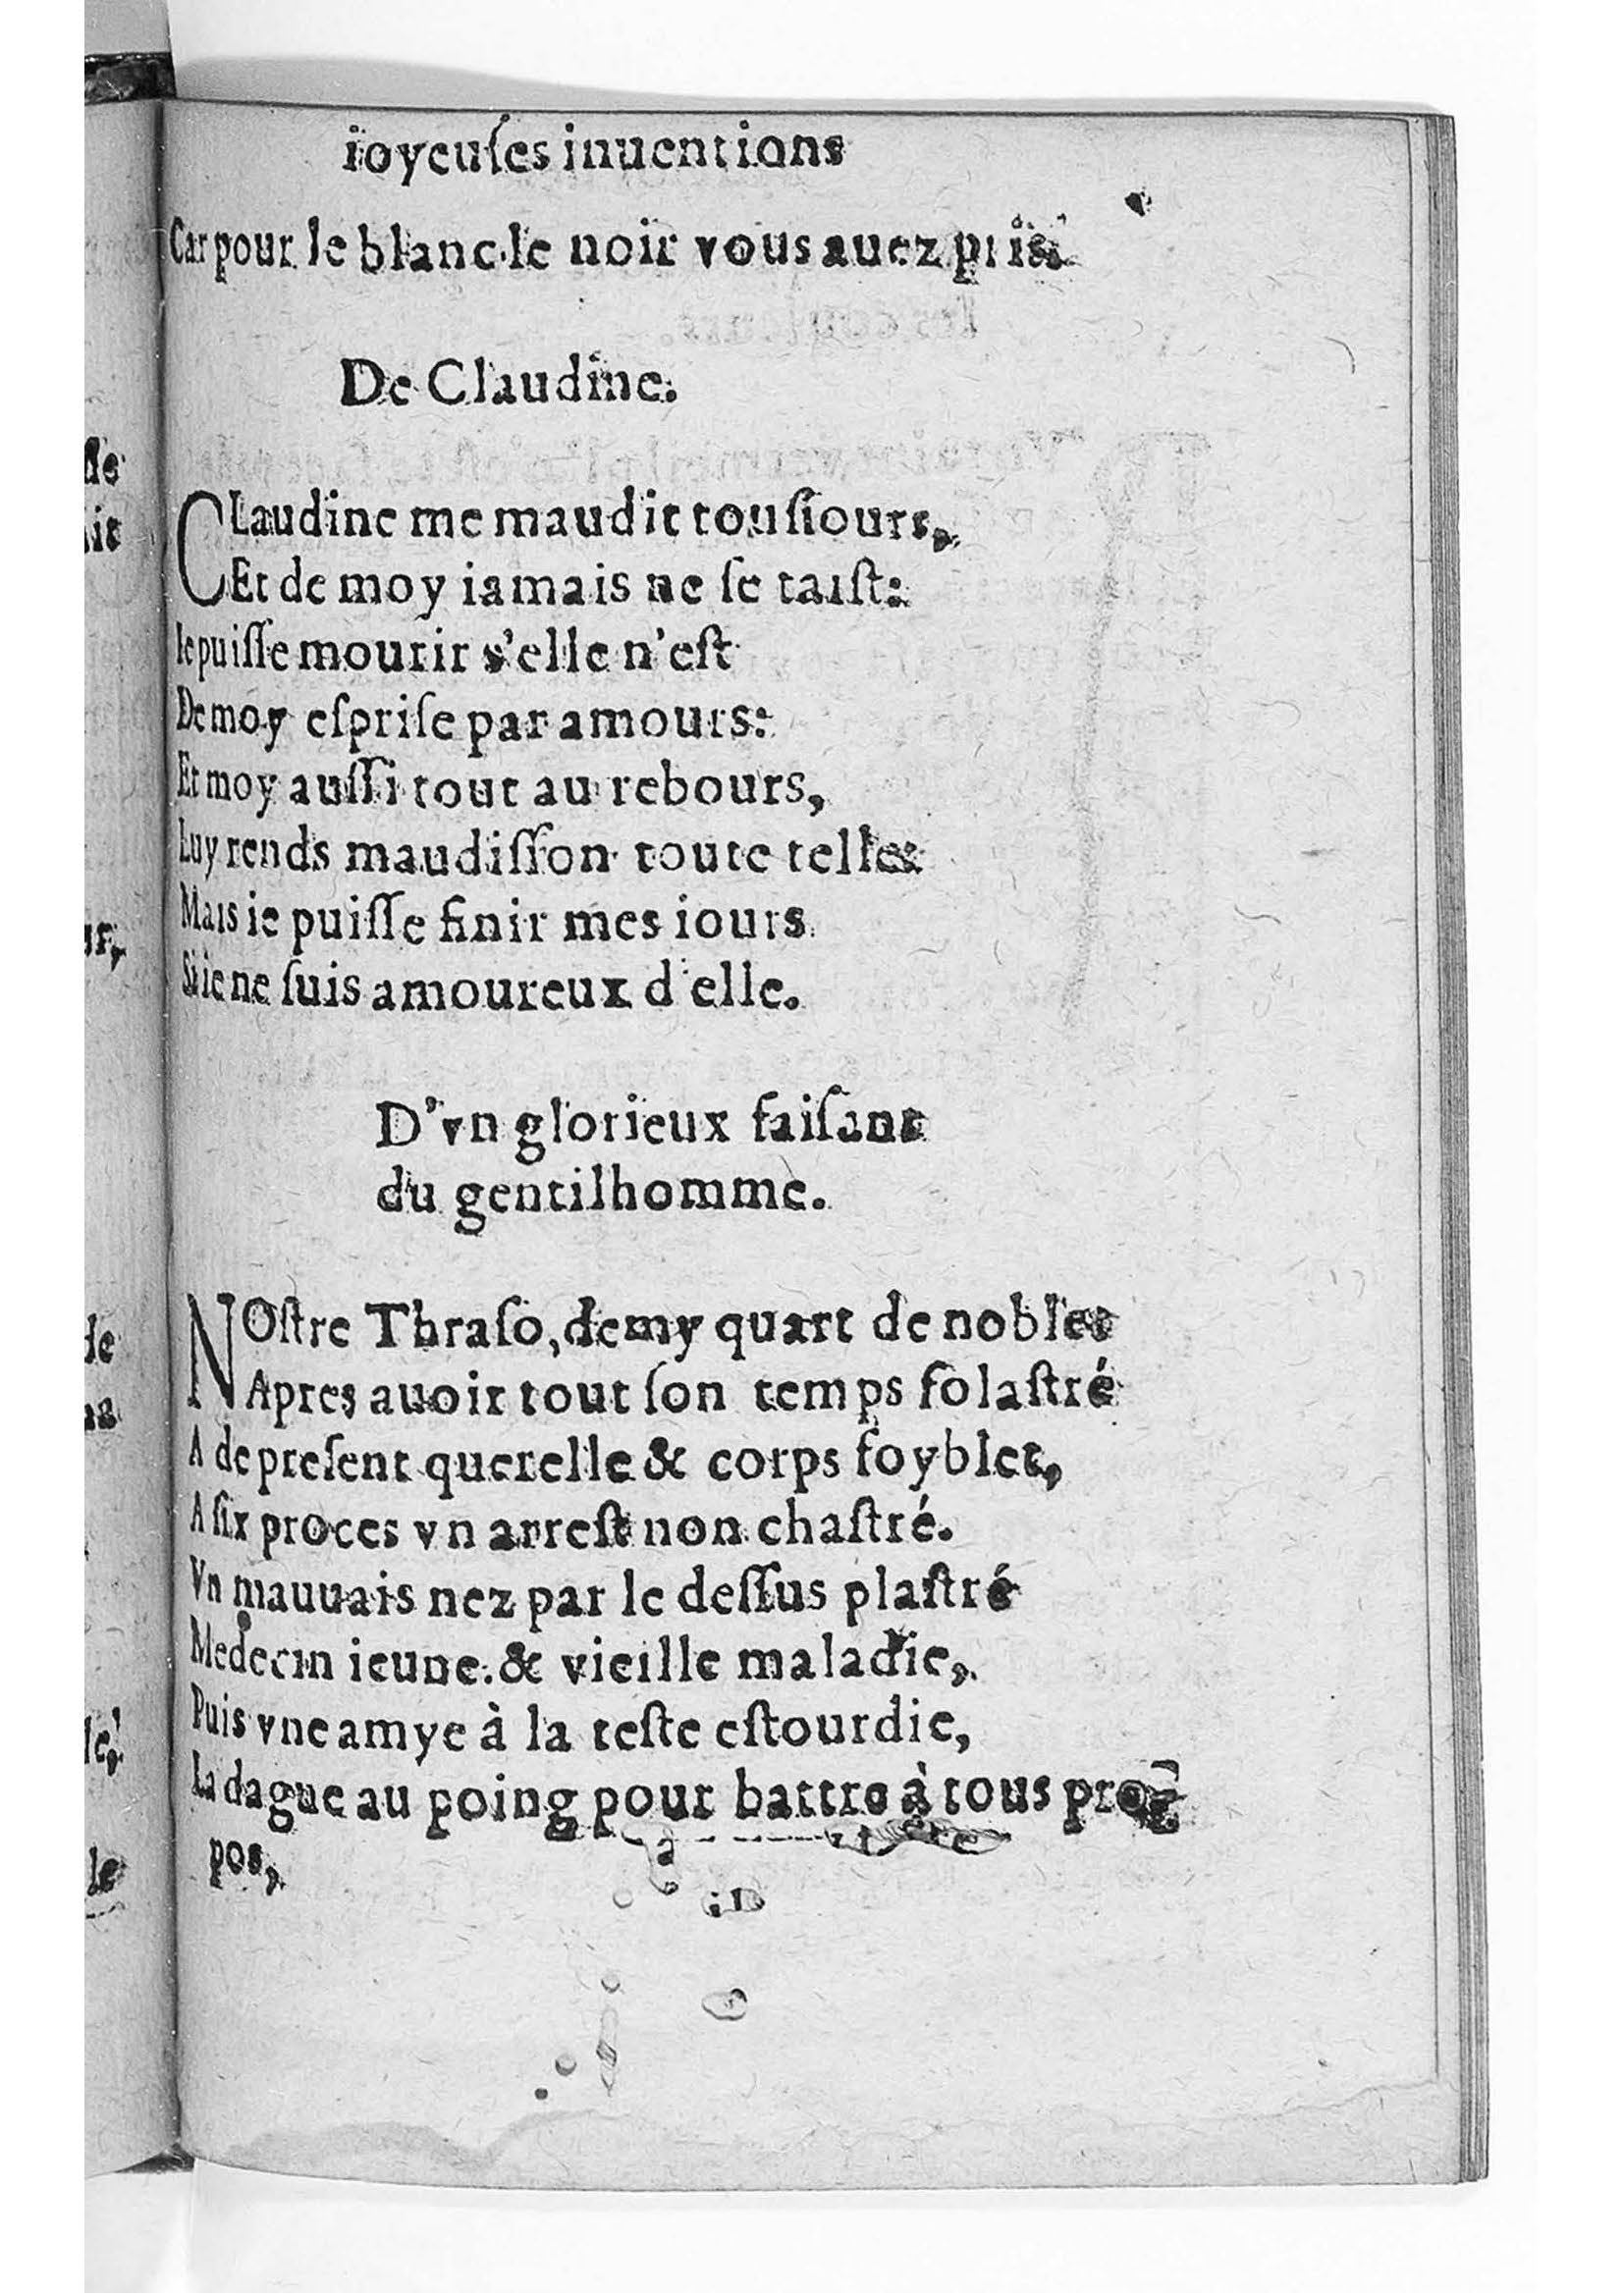 ioyeuſes inuentions
Car pour le blanc le noir vous auez pris
De Claudine.
CLaudine me maudit touſiours,
Et de moy iamais ne ſe taiſt:
Ie puiſſe mourir s'elle n'eſt
De moy eſpriſe par amours:
Et moy auſſi tout au rebours,
Luy rends maudiſſon toute telle:
Mais ie puiſſe finir mes iours
Si ie ne ſuis amoureux d'elle.
D'vn glorieux faiſant
du gentilhomme.
NOſtre Thraſo, demy quart de noblet
Apres auoir tout ſon temps folaſtré
A de preſent querelle & corps foyblet,
A ſix proces vn arreſt non chaſtré.
Vn mauuais nez par le deſſus plaſtré
Medecin ieune & vieille maladie,
Puis vne amye à la teſte eſtourdie,
La dague au poing pour battre à tous pro-
pos,